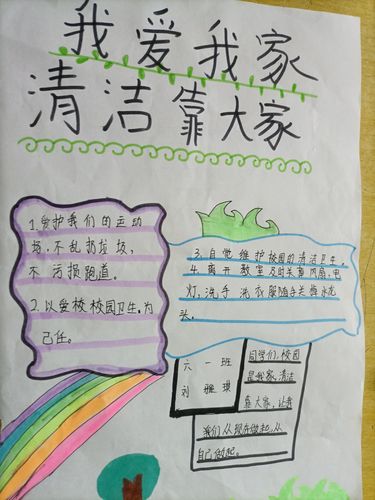 我爱我家
清洁靠大家
1.爱护我们的运动
场,不乱扔垃圾,
不污损跑道。
2.以爱校校园卫生,为
己任。
3.自觉维护校园的清洁卫生。
4.离开教室及时关窗闭扇,电
灯.洗手洗衣服随手关
头。
六一班
刘雅琪
同学们,校园
是我家,清洁
靠大家,让我
我们从现在做起,从
自己做起。